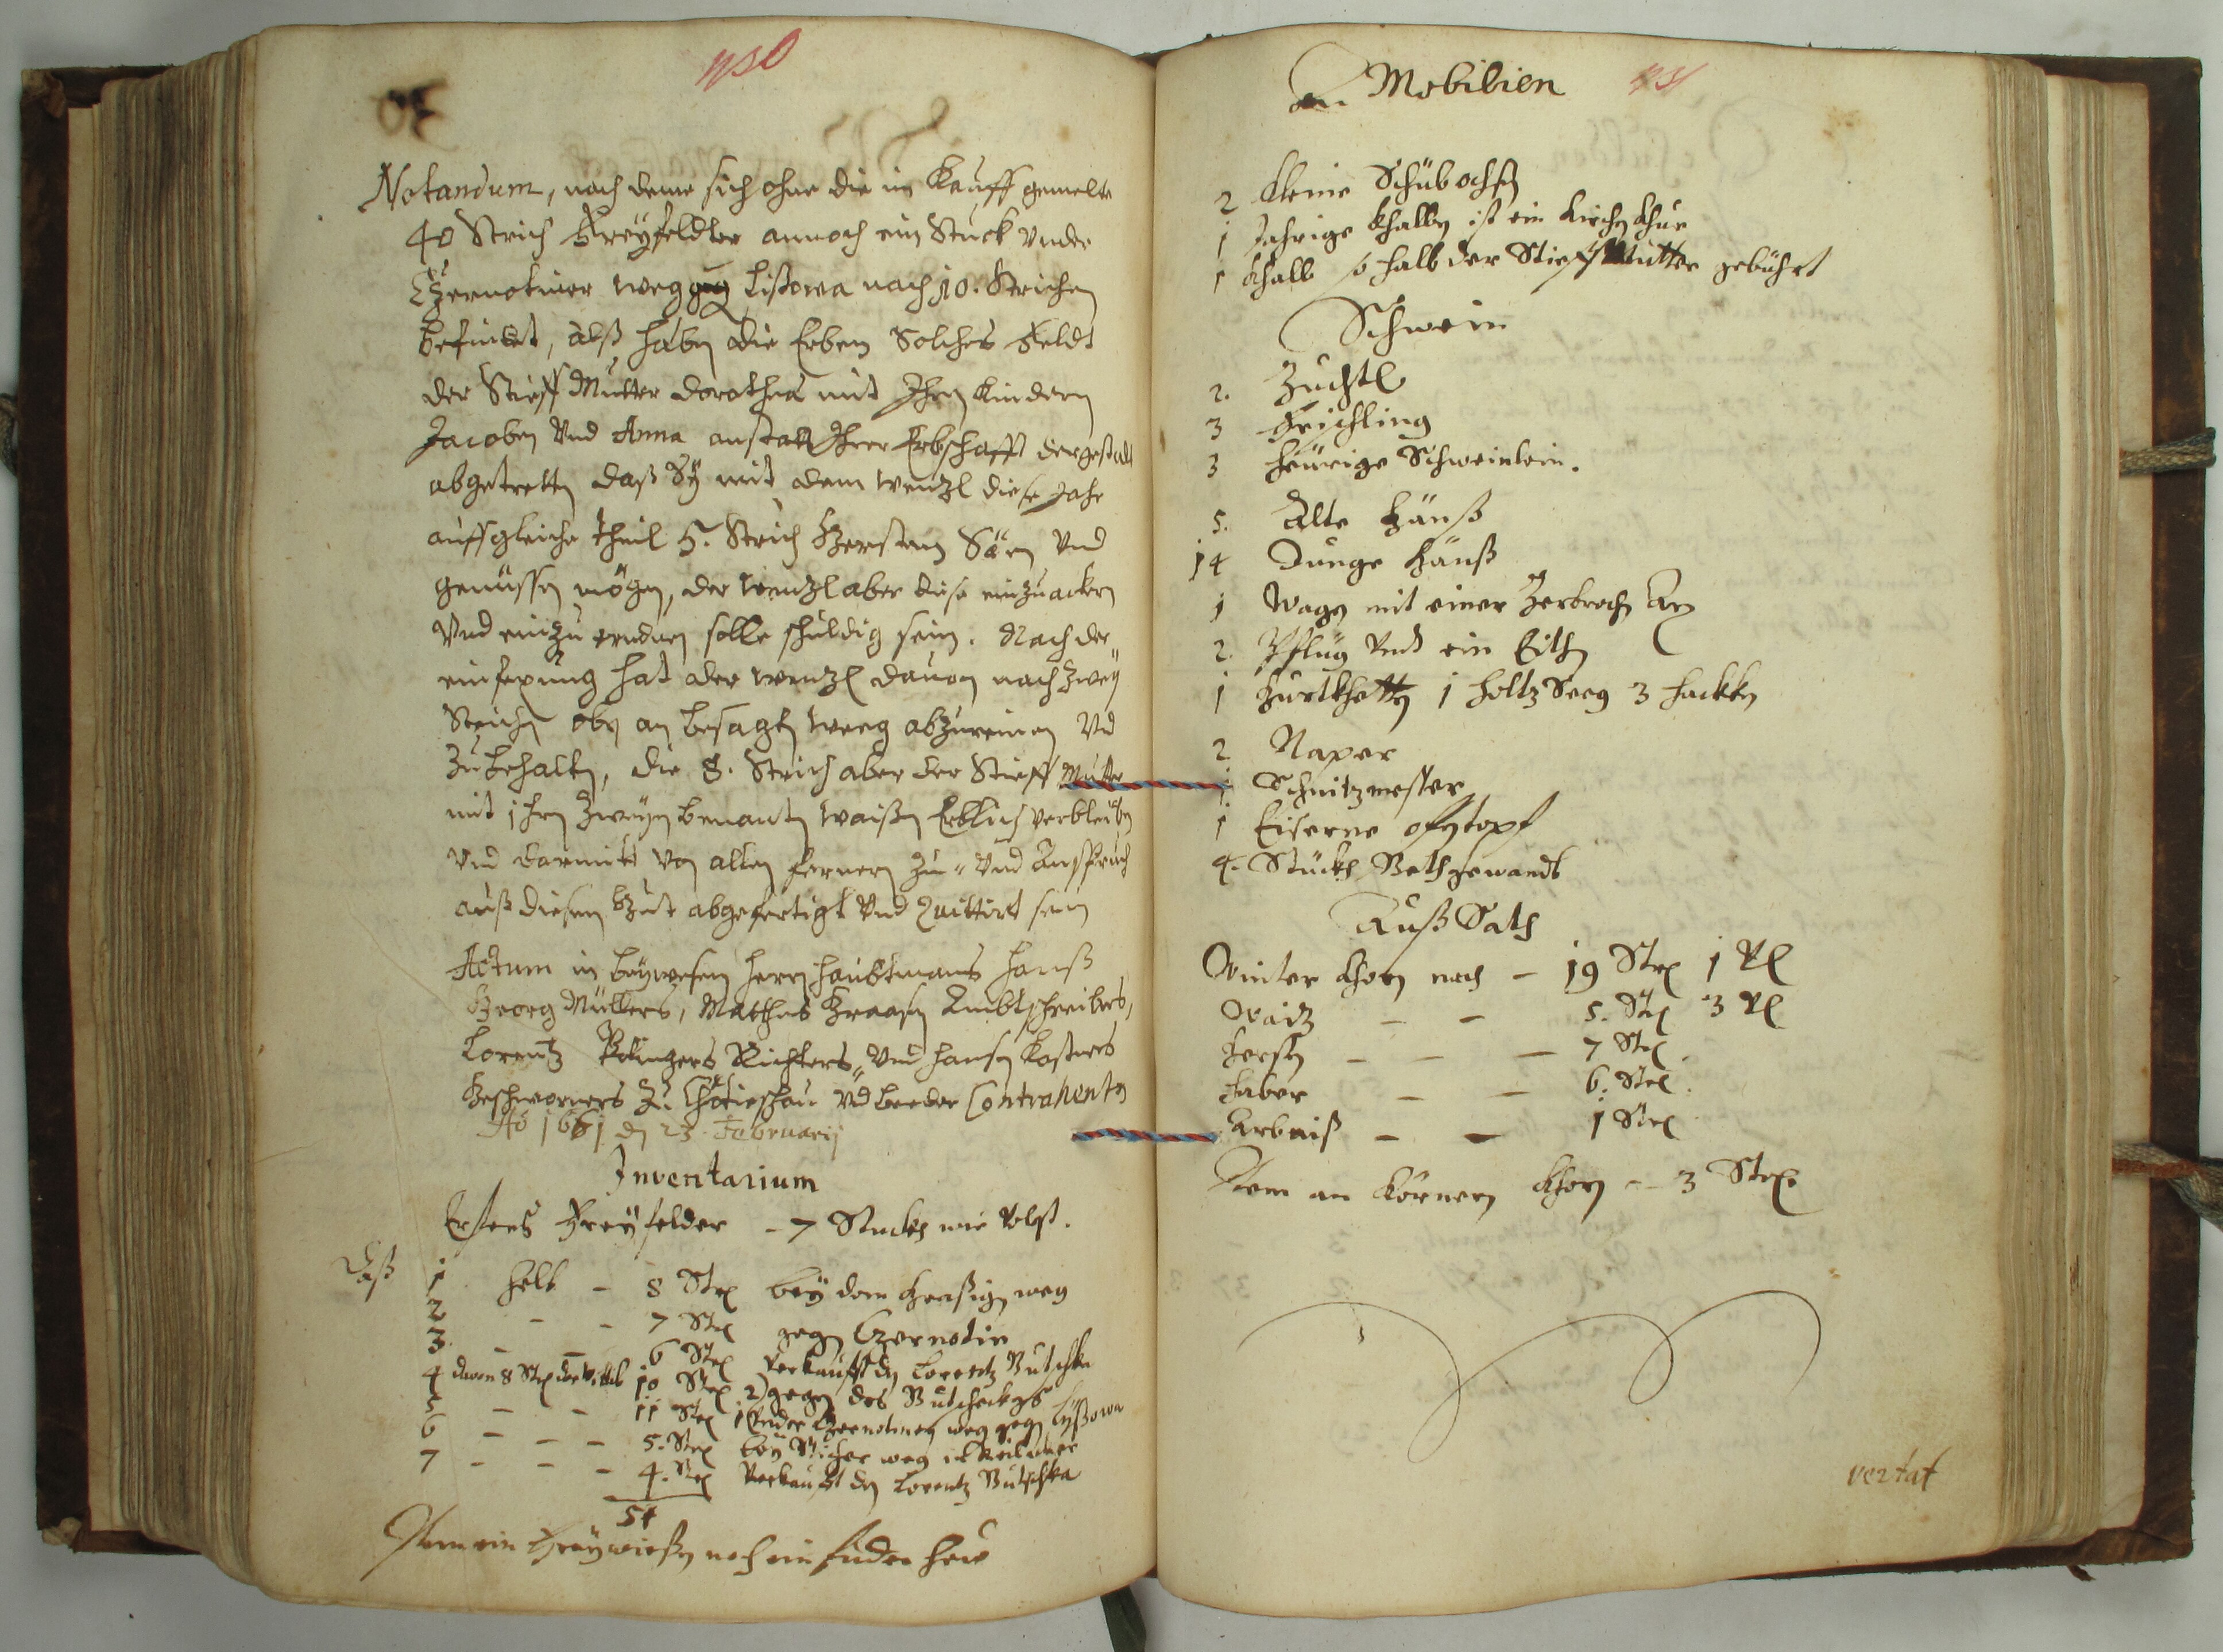 450
Notandum, nach deme sich ohne die im Kauff gemelte
40 Strich Freyfeldter annoch ein Stuck under
Czernotiner weg gegen Lissowa nach 10. Strichen
befindet, alß haben die Erben Solches Feldt
der Stieff Mutter Dorothea mit Ihren Kindern
Jacoben Und Anna anstatt Ihrer Erbschafft dergestalt
abgetretten daß Sy mit dem Wenzl diese Jahr
auff gleiche theil 5. Strich Gersten Säen Und
genüssen mögen, der Wenzl aber diese einzuackern
Und einzu erndnen solle schuldig sein. Nach der
einfexung hat der Wenzl davon nach Zwey
Strichen oben an besagten Weeg abzureinen Und
Zubehalten, die 8. Strich aber der Stieff Mutter
mit ihren Zweyen benanten Waißen Erblich verbleiben
Und darmit Von allen fernern Zu- Und Anspruch
auß diesem Gut abgefertigt Und Quittirt sein
Actum in beywesen Herrn Haubtmans Hanß
Georg Müllers, Matthes Graasen Ambtschreibers,
Lorentz Richters, Und Hansen Kastners
Geschworners Zu Chotieschau Und beeder Contrahenten
Ao 1661 den 23 Februarij
Inventarium
Erstens Freyfelder - 7 Stuckh wie Volgt.
Daß 1 helt - 8 Str bey dem weg
2 - - 7 Str gegen Czernotin
3 - - 6 Str Verkaufft den Lorentz Butschka
4 davon 8 Str der Wittib 10 Str 2) gegen des
5 - - 11 Str 1 Under Czernotiner weg gegen Lyssowa
6 - - - 5. Str bey Sticher weg
7 - - - 4. Str Verkaufft den Lorentz Butschka
51
Item ein Freywiesen nach ein fuder Hew
An Mobilien 451
2 kleine Schübochsen
1 Jahrige Khalben ist ein Kirchen Khue
1 Khalb so halb der Stieff Mutter gebührt
Schwein
2. Zuchtl
3 Frischling
3 heürige Schweinlein.
5. Alte Gänß
14 Junge Gänß
1 Wagen mit einer Zerbrochen Ax
2. Pflug Und ein Eithen
1 Gurtkhetten 1 holtz Seeg 3 hackhen
2 Naper
1 Schnitzmesser
1 Eiserne ofentopf
4. Stückh Bethgewandt
Auß Sath
Winter Khorn nach - 19 Str 1 Vl
Waitz - - 5. Str 3 Vl
Gersten - - - 7 Str
Haber - - 6. Str.
Arbaiß - - 1 Str
Item an Körnern Khorn - - 3 Str.
vertat